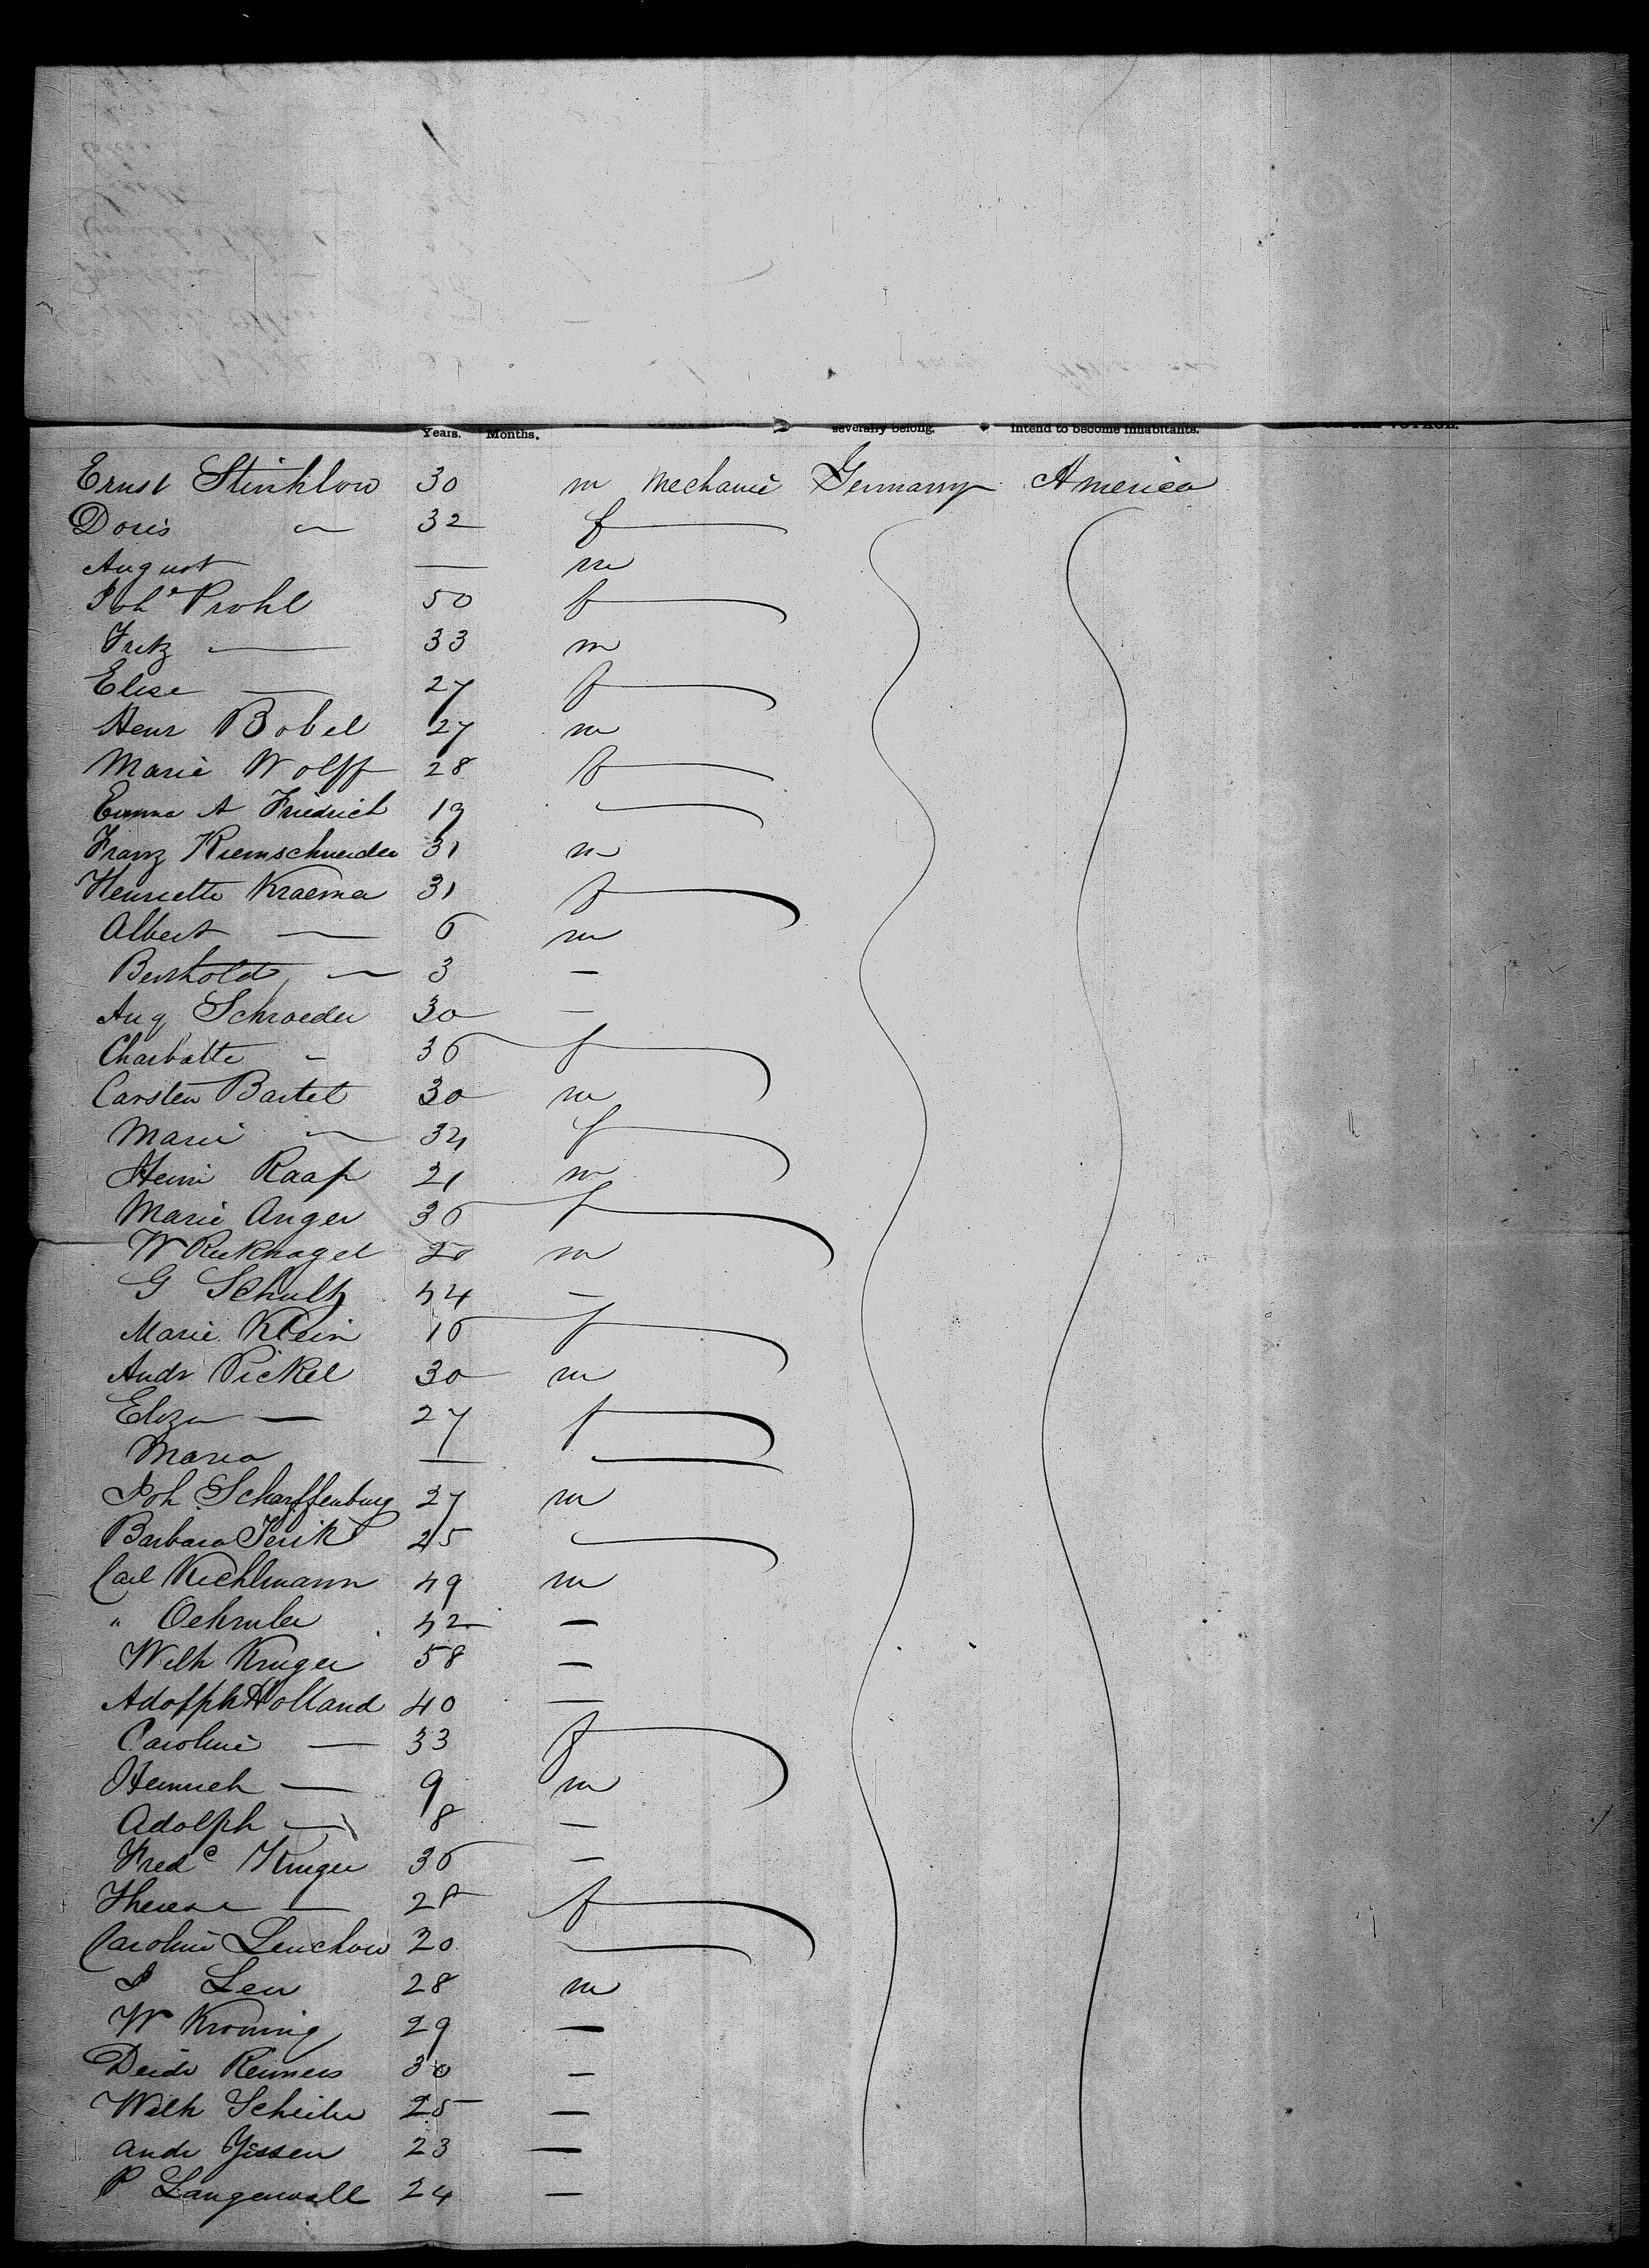 Years. Months. severally belong. intend to become inhabitants. VOYAGE.
Ernst Stinklow 30 m Mechanic Germany America
Doris " 32 f
August — m
Joh.ª Prohl 50 f
Fritz — 33 m
Elise — 27 f
Henr Bobel 27 m
Marie Wolff 28 f
Emma A Friedrich 19
Franz Riemschneider 31 m
Henriette Kraemer 31 f
Albert — 6 m
Berthold — 3 —
Aug Schroeder 30 —
Charlotte - 36 f
Carsten Bartel 30 m
Marie — 34 f
Heinr Raap 21 m
Marie Anger 36 f
W Recknagel 20 m
G Schultz 44 —
Marie Klein 16 f
Andr Pickel 30 m
Eliza — 27 f
Maria —
Joh Scharffenburg 27 m
Barbara 25
Carl Kuhlmann 49 m
" 42 —
Wilh Kruger 58 —
Adolph Holland 40 —
Caroline — 33 f
Heinrich — 9 m
Adolph — 8 —
Fredc Kruger 36 —
Therese — 28 f
Caroline Leuchow 20
J Leu 28 m
W Kroning 29 —
Reimers 30 —
Wilh 25 —
Andr Jissen 23 —
P Langewall 24 —